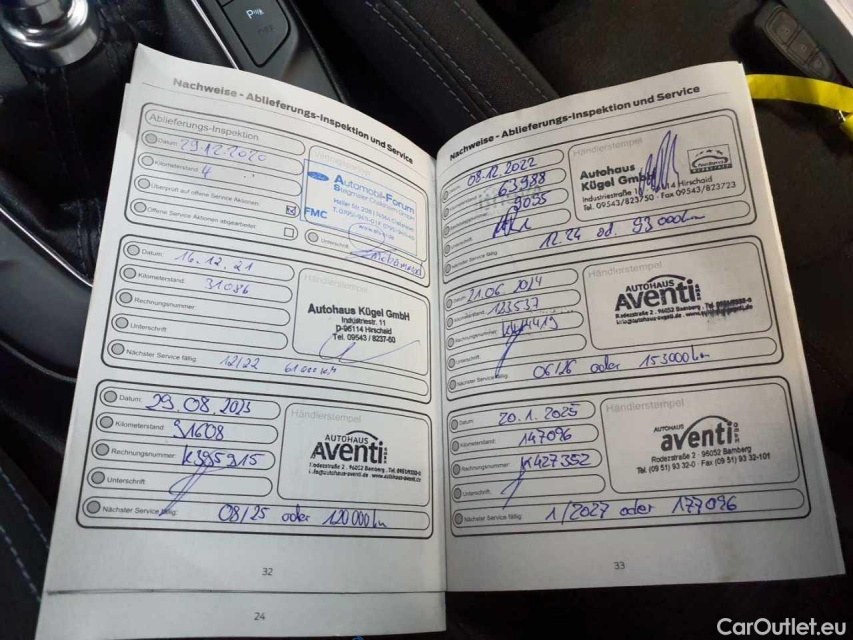 Nachweise - Ablieferungs-Inspektion und Service
Ablieferungs-Inspektion
Datum: 29.12.2020
Kilometerstand: 4
Überprüft auf offene Service Aktionen:
Offene Service Aktionen abgearbeitet:
Automobil-Forum
FMC
Unterschrift
Datum: 16.12.21
Kilometerstand: 31086
Rechnungsnummer:
Unterschrift
Nächster Service fällig: 12/22 61000 km
Händlerstempel
Autohaus Kügel GmbH
Industriestr. 11
D-96114 Hirschaid
Tel. 09543 / 8237-50
Datum: 29.08.2023
Kilometerstand: 91608
Rechnungsnummer: K395915
Unterschrift
Nächster Service fällig: 08/25 oder 120000 km
Händlerstempel
AUTOHAUS
AVENTI
Rodezstraße 2 . 96052 Bamberg
32
24
Nachweise - Ablieferungs-Inspektion und Service
Datum: 08.12.2022
Kilometerstand: 63988
9055
Unterschrift
Nächster Service fällig: 12.24 od. 93000 km
Autohaus
Kügel GmbH
Tel. 09543/823750 · Fax 09543/823723
Datum: 21.06 2024
Kilometerstand: 123537
Rechnungsnummer:
Unterschrift
Nächster Service fällig: 06/26 oder 153000 km
Händlerstempel
AUTOHAUS
AVENTI
Rodezstraße 2 . 96052 Bamberg
Datum: 20.1.2025
Kilometerstand: 147096
Rechnungsnummer: K427352
Unterschrift
Nächster Service fällig: 1/2027 oder 177096
Händlerstempel
AUTOHAUS
aventi
Rodezstraße 2 . 96052 Bamberg
Tel (09 51) 93 32-0 · Fax (09 51) 93 32-101
33
CarOutlet.eu